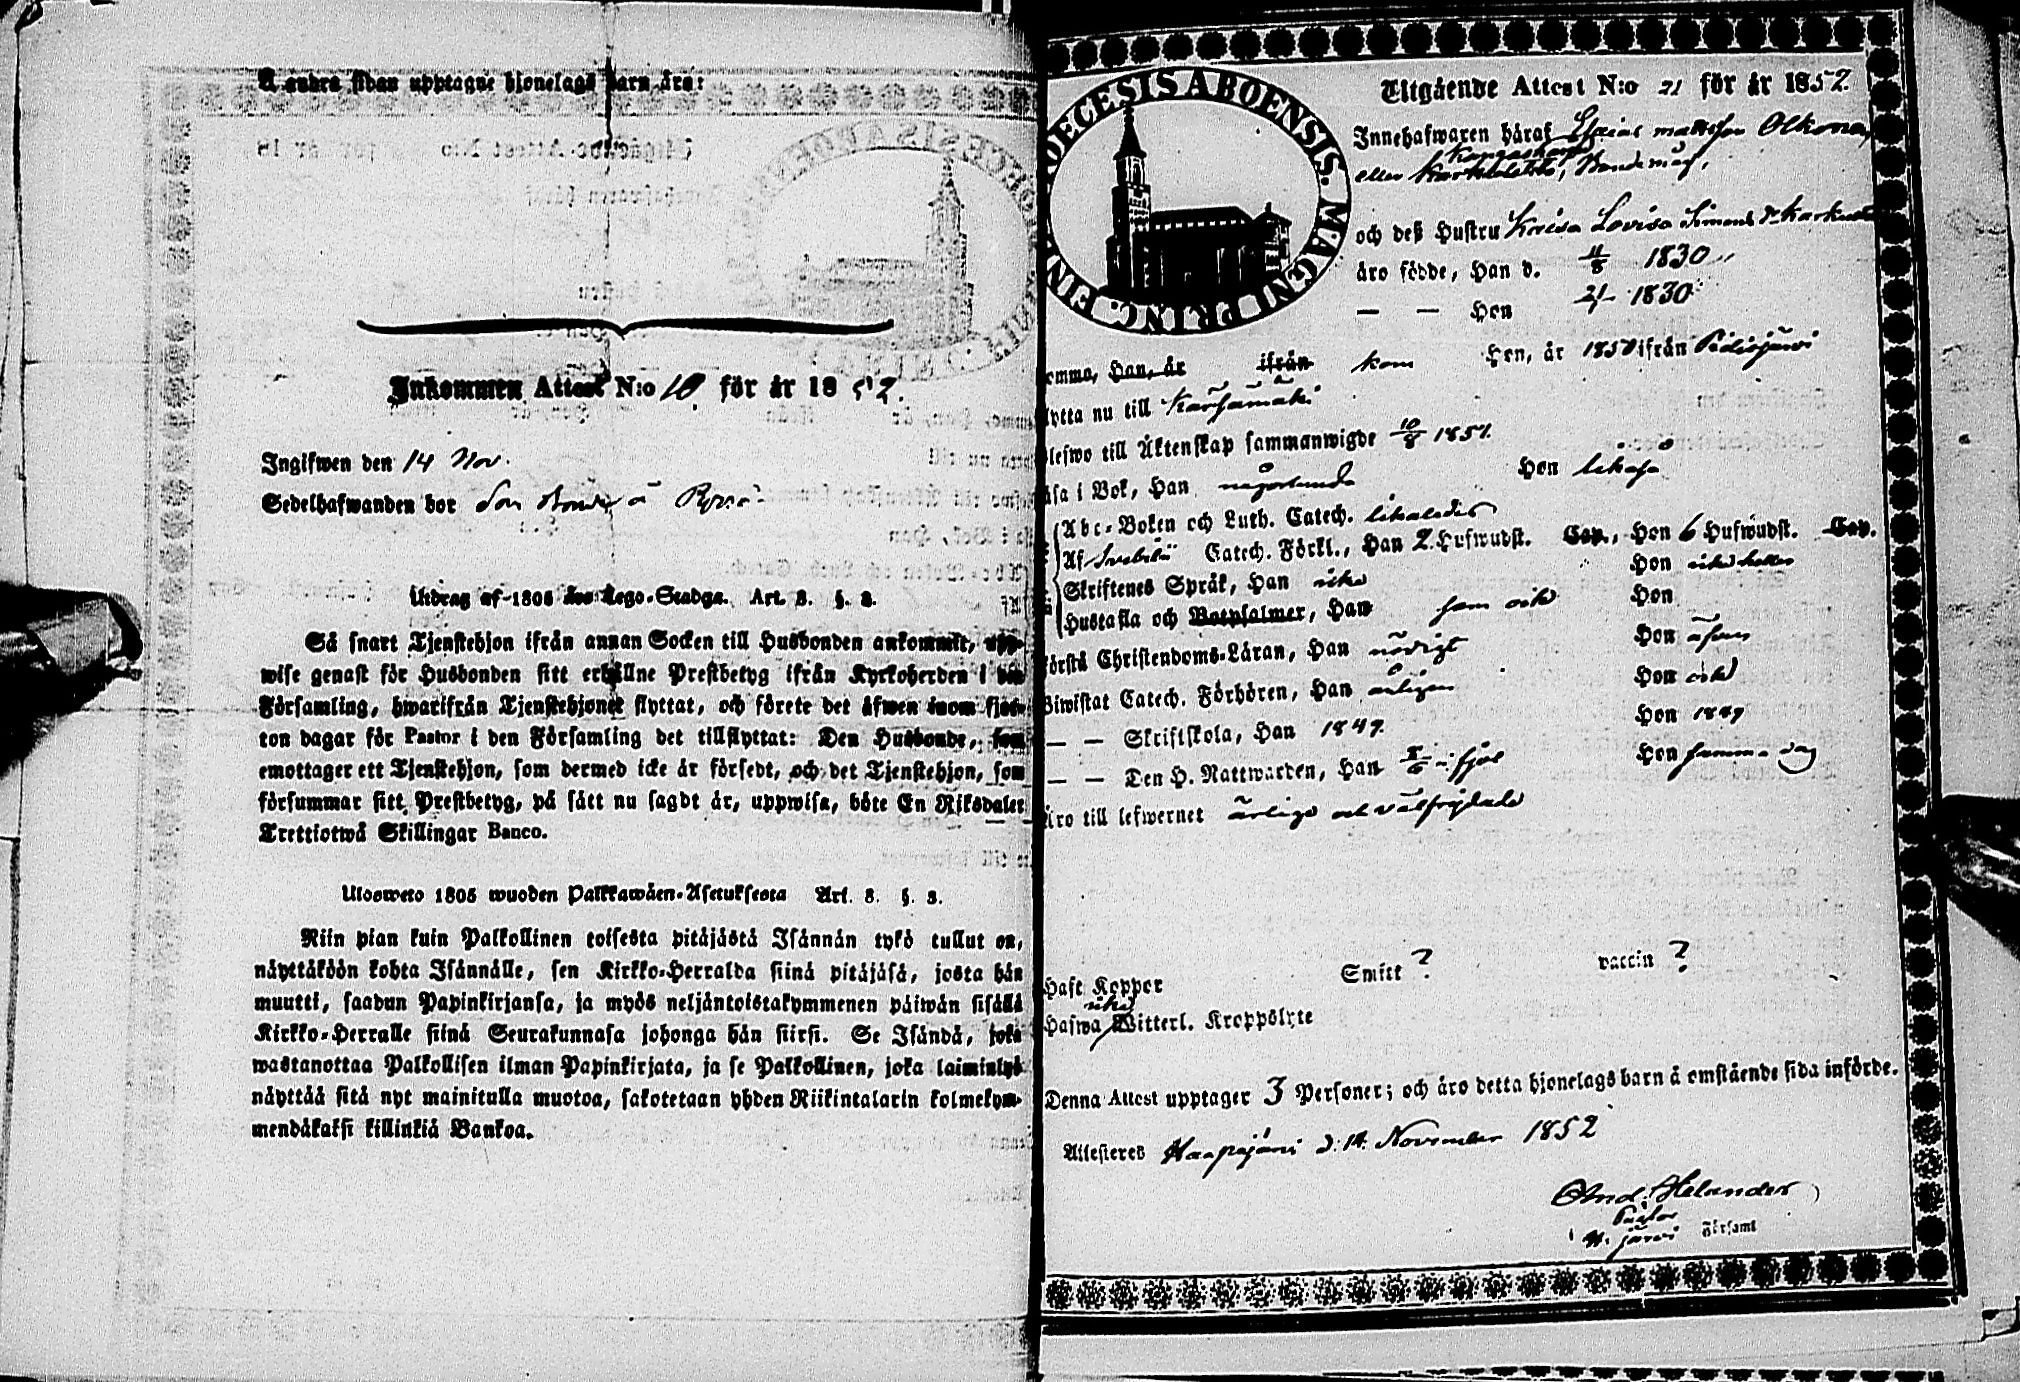 Å andra sidan upptagne hjonelags barn äro:
Inkommen Attest N:o 10 för år 1852.
Ingifwen den 14 Nov.
Sedelhafwanden bor
Utdrag af 1805 års Lego-Stadga. Art. 3. §. 3.
Så snart Tjenstehjon ifrån annan Socken till Husbonden ankommit, upp-
wise genast för Husbonden sitt erhållne Prestbetyg ifrån Kyrkoherden i den
Församling, hwarifrån Tjenstehjonet flyttat, och förete det äfwen inom fjor-
ton dagar för Pastor i den Församling det tillflyttat: Den Husbonde, som
emottager ett Tjenstehjon, som dermed icke är försedt, och det Tjenstehjon, som
försummar sitt Prestbetyg, på sätt nu sagdt är, uppwisa, böte En Riksdaler
Trettiotwå Skillingar Banco.
Ulosweto 1805 wuoden Palkkawäen-Asetuksesta Art. 3. §. 3.
Niin pian kuin Palkollinen toisesta pitäjästä Isännän tykö tullut on,
näyttäköön kohta Isännälle, sen Kirkko-Herralda siinä pitäjäsä, josta hän
muutti, saadun Papinkirjansa, ja myös neljäntoistakymmenen päiwän sisällä
Kirkko-Herralle siinä Seurakunnasa johonga hän siirsi. Se Isändä, joka
wastanottaa Palkollisen ilman Papinkirjata, ja se Palkollinen, joka laiminlyö
näyttää sitä nyt mainitulla muotoa, sakotetaan yhden Riikintalarin kolmekym-
mendäkaksi killinkiä Bankoa.
DIOECESIS ABOENSIS. MAGNI PRINC. FINL
Utgående Attest N:o 21 för år 1852.
Innehafwaren häraf Esaias Mattsson Olkona,
eller
och deß Hustru Kaisa Lovisa Simons dr
äro födde, Han d. 11/8 1830
— — Hon 1830
komma, Han, år ifrån kom Hon, år 1850 ifrån Pidisjärvi
flytta nu till Kärsämäki
blefwo till Äktenskap sammanwigde 10/8 1851.
läsa i Bok, Han någorlunda Hon likaså
Abc-Boken och Luth. Catech. likaledes
Af Svebilii Catech. Förkl., Han 2 Hufwudst. Cap., Hon 6 Hufwudst. Cap.
Skriftenes Språk, Han icke Hon icke heller
Hustafla och Botpsalmer, Han Hon
förstå Christendoms-Läran, Han nödigt Hon äfven
Biwistat Catech. Förhören, Han årligen Hon
— — Skriftskola, Han 1849. Hon 1849
— — Den H. Nattwarden, Han Hon samma dag
Äro till lefwernet ärliga och välfrejdade
Haft Koppor Smitt ? vaccin ?
icke
Hafwa Witterl. Kroppslyte
Denna Attest upptager 3 Personer; och äro detta hjonelags barn å omstående sida införde.
Attesteres Haapajärvi d. 14 November 1852
And. Helander
Pastor
i H.järvi Församl